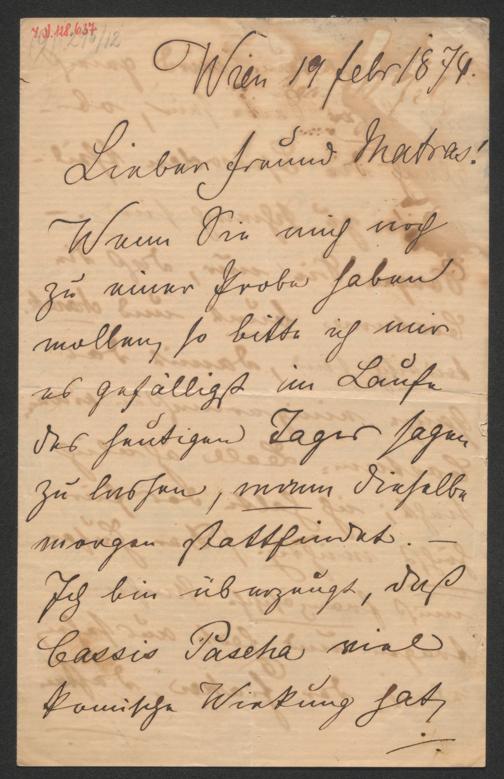 I.N. 118.637
Wien 19 febr 1874.
Lieber Freund Matras!
Wenn Sie mich noch
zu einer Probe haben
wollen, so bitte ich mir
es gefälligst im Laufe
des heutigen Tages sagen
zu lassen, wann dieselbe
morgen stattfindet. —
Ich bin überzeugt, daß
Cassis Pascha viel
komische Wirkung hat,